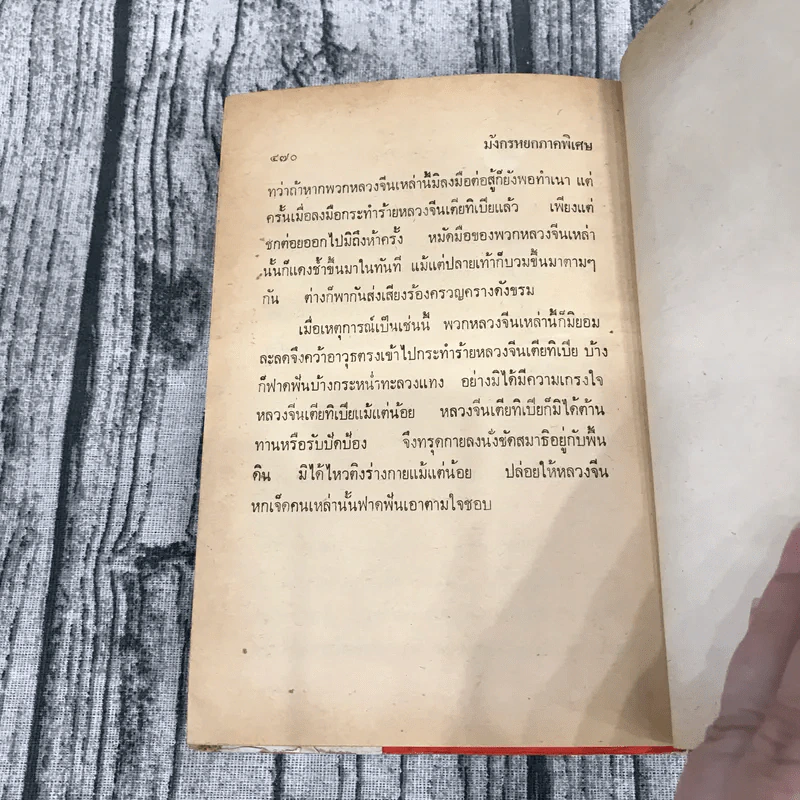 ๔๗๐
มังกรหยกภาคพิเศษ
ทว่าถ้าหากพวกหลวงจีนเหล่านี้มิลงมือต่อสู้ก็ยังพอทำเนา แต่
ครั้นเมื่อลงมือกระทำร้ายหลวงจีนเตียทิเบียแล้ว เพียงแต่
ชกต่อยออกไปมิถึงห้าครั้ง หมัดมือของพวกหลวงจีนเหล่า
นั้นก็แดงช้ำขึ้นมาในทันที แม้แต่ปลายเท้าก็บวมขึ้นมาตามๆ
กัน ต่างก็พากันส่งเสียงร้องครวญครางดังขรม
เมื่อเหตุการณ์เป็นเช่นนี้ พวกหลวงจีนเหล่านี้ก็มิยอม
ละลดจึงคว้าอาวุธตรงเข้าไปกระทำร้ายหลวงจีนเตียทิเบีย บ้าง
ก็ฟาดฟันบ้างกระหน่ำทะลวงแทง อย่างมิได้มีความเกรงใจ
หลวงจีนเตียทิเบียแม้แต่น้อย หลวงจีนเตียทิเบียก็มิได้ต้าน
ทานหรือรับปัดป้อง จึงทรุดกายลงนั่งขัดสมาธิอยู่กับพื้น
ดิน มิได้ไหวติงร่างกายแม้แต่น้อย ปล่อยให้หลวงจีน
หกเจ็ดคนเหล่านั้นฟาดฟันเอาตามใจชอบ